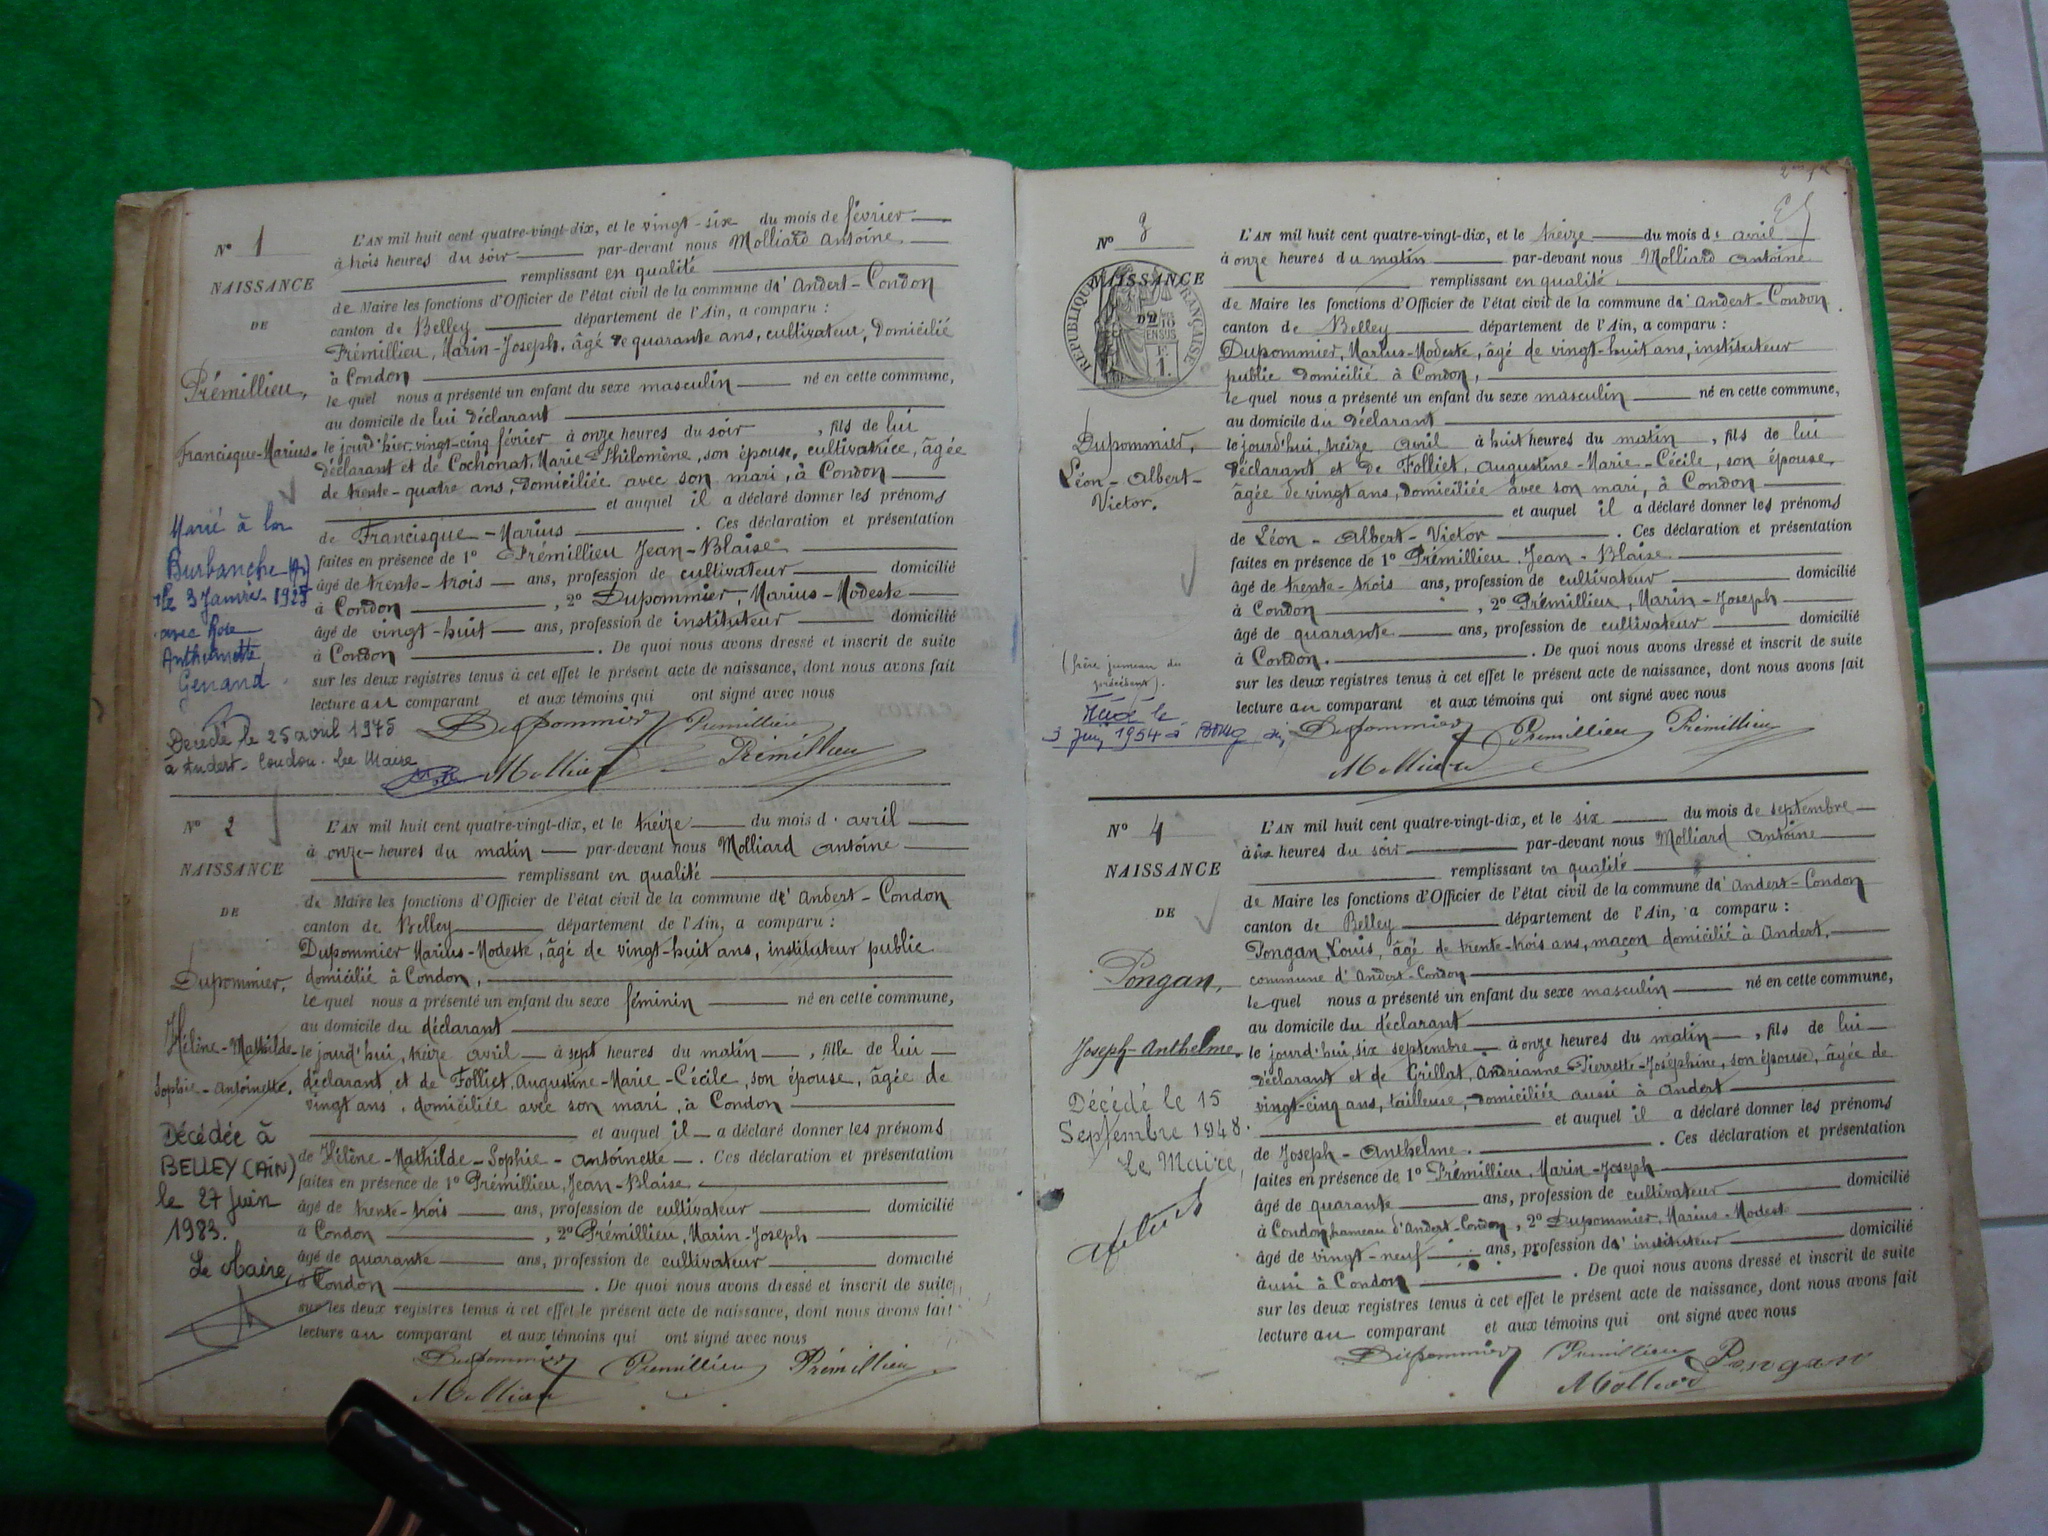 N° 1
NAISSANCE
DE
Prémillieu,
Francisque-Marius.
Marié à La
Burbanche (Ain)
le 3 Janvier 1925
avec Rose
Anthelmette
Genand
Décédé le 25 avril 1975
à Andert-Condon. Le Maire
L'AN mil huit cent quatre-vingt-dix, et le vingt-six du mois de février
à trois heures du soir par-devant nous Molliard Antoine
remplissant en qualité
de Maire les fonctions d'Officier de l'état civil de la commune d'Andert-Condon
canton de Belley département de l'Ain, a comparu :
Prémillieu, Marin-Joseph, âgé de quarante ans, cultivateur, domicilié
à Condon
le quel nous a présenté un enfant du sexe masculin né en cette commune,
au domicile de lui déclarant
le jourd'hier, vingt-cinq février à onze heures du soir, fils de lui
déclarant et de Cochonat, Marie-Philomène, son épouse, cultivatrice, âgée
de trente-quatre ans, domiciliée avec son mari, à Condon
et auquel il a déclaré donner les prénoms
de Francisque-Marius. Ces déclaration et présentation
faites en présence de 1° Prémillieu Jean-Blaise
âgé de trente-trois ans, profession de cultivateur domicilié
à Condon, 2° Dupommier, Marius-Modeste
âgé de vingt-huit ans, profession de instituteur domicilié
à Condon. De quoi nous avons dressé et inscrit de suite
sur les deux registres tenus à cet effet le présent acte de naissance, dont nous avons fait
lecture au comparant et aux témoins qui ont signé avec nous
Dupommier Prémillieu
Molliard Prémillieu
N° 2
NAISSANCE
DE
Dupommier,
Hélène-Mathilde-
Sophie-Antoinette.
Décédée à
BELLEY (AIN)
le 27 Juin
1983.
Le Maire,
L'AN mil huit cent quatre-vingt-dix, et le treize du mois d'avril
à onze heures du matin par-devant nous Molliard Antoine
remplissant en qualité
de Maire les fonctions d'Officier de l'état civil de la commune d'Andert-Condon
canton de Belley département de l'Ain, a comparu :
Dupommier Marius-Modeste, âgé de vingt-huit ans, instituteur public
domicilié à Condon,
le quel nous a présenté un enfant du sexe féminin né en cette commune,
au domicile du déclarant
le jourd'hui, treize avril à sept heures du matin, fille de lui
déclarant, et de Folliet, Augustine-Marie-Cécile, son épouse, âgée de
vingt ans, domiciliée avec son mari, à Condon
et auquel il a déclaré donner les prénoms
de Hélène-Mathilde-Sophie-Antoinette. Ces déclaration et présentation
faites en présence de 1° Prémillieu, Jean-Blaise
âgé de trente-trois ans, profession de cultivateur domicilié
à Condon, 2° Prémillieu, Marin-Joseph
âgé de quarante ans, profession de cultivateur domicilié
à Condon. De quoi nous avons dressé et inscrit de suite
sur les deux registres tenus à cet effet le présent acte de naissance, dont nous avons fait
lecture au comparant et aux témoins qui ont signé avec nous
Dupommier Prémillieu Prémillieu
Molliard
N° 3
NAISSANCE
DE
RÉPUBLIQUE FRANÇAISE
Dupommier,
Léon-Albert-
Victor.
(frère jumeau du
précédent).
3 Juin 1954 à
L'AN mil huit cent quatre-vingt-dix, et le treize du mois d'avril
à onze heures du matin par-devant nous Molliard Antoine
remplissant en qualité
de Maire les fonctions d'Officier de l'état civil de la commune d'Andert-Condon
canton de Belley département de l'Ain, a comparu :
Dupommier, Marius-Modeste, âgé de vingt-huit ans, instituteur
public domicilié à Condon,
le quel nous a présenté un enfant du sexe masculin né en cette commune,
au domicile du déclarant
le jourd'hui, treize avril à huit heures du matin, fils de lui
déclarant et de Folliet, Augustine-Marie-Cécile, son épouse,
âgée de vingt ans, domiciliée avec son mari, à Condon
et auquel il a déclaré donner les prénoms
de Léon-Albert-Victor. Ces déclaration et présentation
faites en présence de 1° Prémillieu, Jean-Blaise
âgé de trente-trois ans, profession de cultivateur domicilié
à Condon, 2° Prémillieu, Marin-Joseph
âgé de quarante ans, profession de cultivateur domicilié
à Condon. De quoi nous avons dressé et inscrit de suite
sur les deux registres tenus à cet effet le présent acte de naissance, dont nous avons fait
lecture au comparant et aux témoins qui ont signé avec nous
Dupommier Prémillieu Prémillieu
Molliard
N° 4
NAISSANCE
DE
Pongan,
Joseph-Anthelme.
Décédé le 15
Septembre 1948.
Le Maire,
L'AN mil huit cent quatre-vingt-dix, et le six du mois de septembre
à six heures du soir par-devant nous Molliard Antoine
remplissant en qualité
de Maire les fonctions d'Officier de l'état civil de la commune d'Andert-Condon
canton de Belley département de l'Ain, a comparu :
Pongan, Louis, âgé de trente-trois ans, maçon domicilié à Andert,
commune d'Andert-Condon
le quel nous a présenté un enfant du sexe masculin né en cette commune,
au domicile du déclarant
le jourd'hui, six septembre à onze heures du matin, fils de lui
déclarant et de Grillat, Andrianne-Pierrette-Joséphine, son épouse, âgée de
vingt-cinq ans, tailleuse, domiciliée aussi à Andert
et auquel il a déclaré donner les prénoms
de Joseph-Anthelme. Ces déclaration et présentation
faites en présence de 1° Prémillieu, Marin-Joseph
âgé de quarante ans, profession de cultivateur domicilié
à Condon, hameau d'Andert-Condon, 2° Dupommier, Marius-Modeste
âgé de vingt-neuf ans, profession d'instituteur domicilié
aussi à Condon. De quoi nous avons dressé et inscrit de suite
sur les deux registres tenus à cet effet le présent acte de naissance, dont nous avons fait
lecture au comparant et aux témoins qui ont signé avec nous
Dupommier Prémillieu Pongan
Molliard